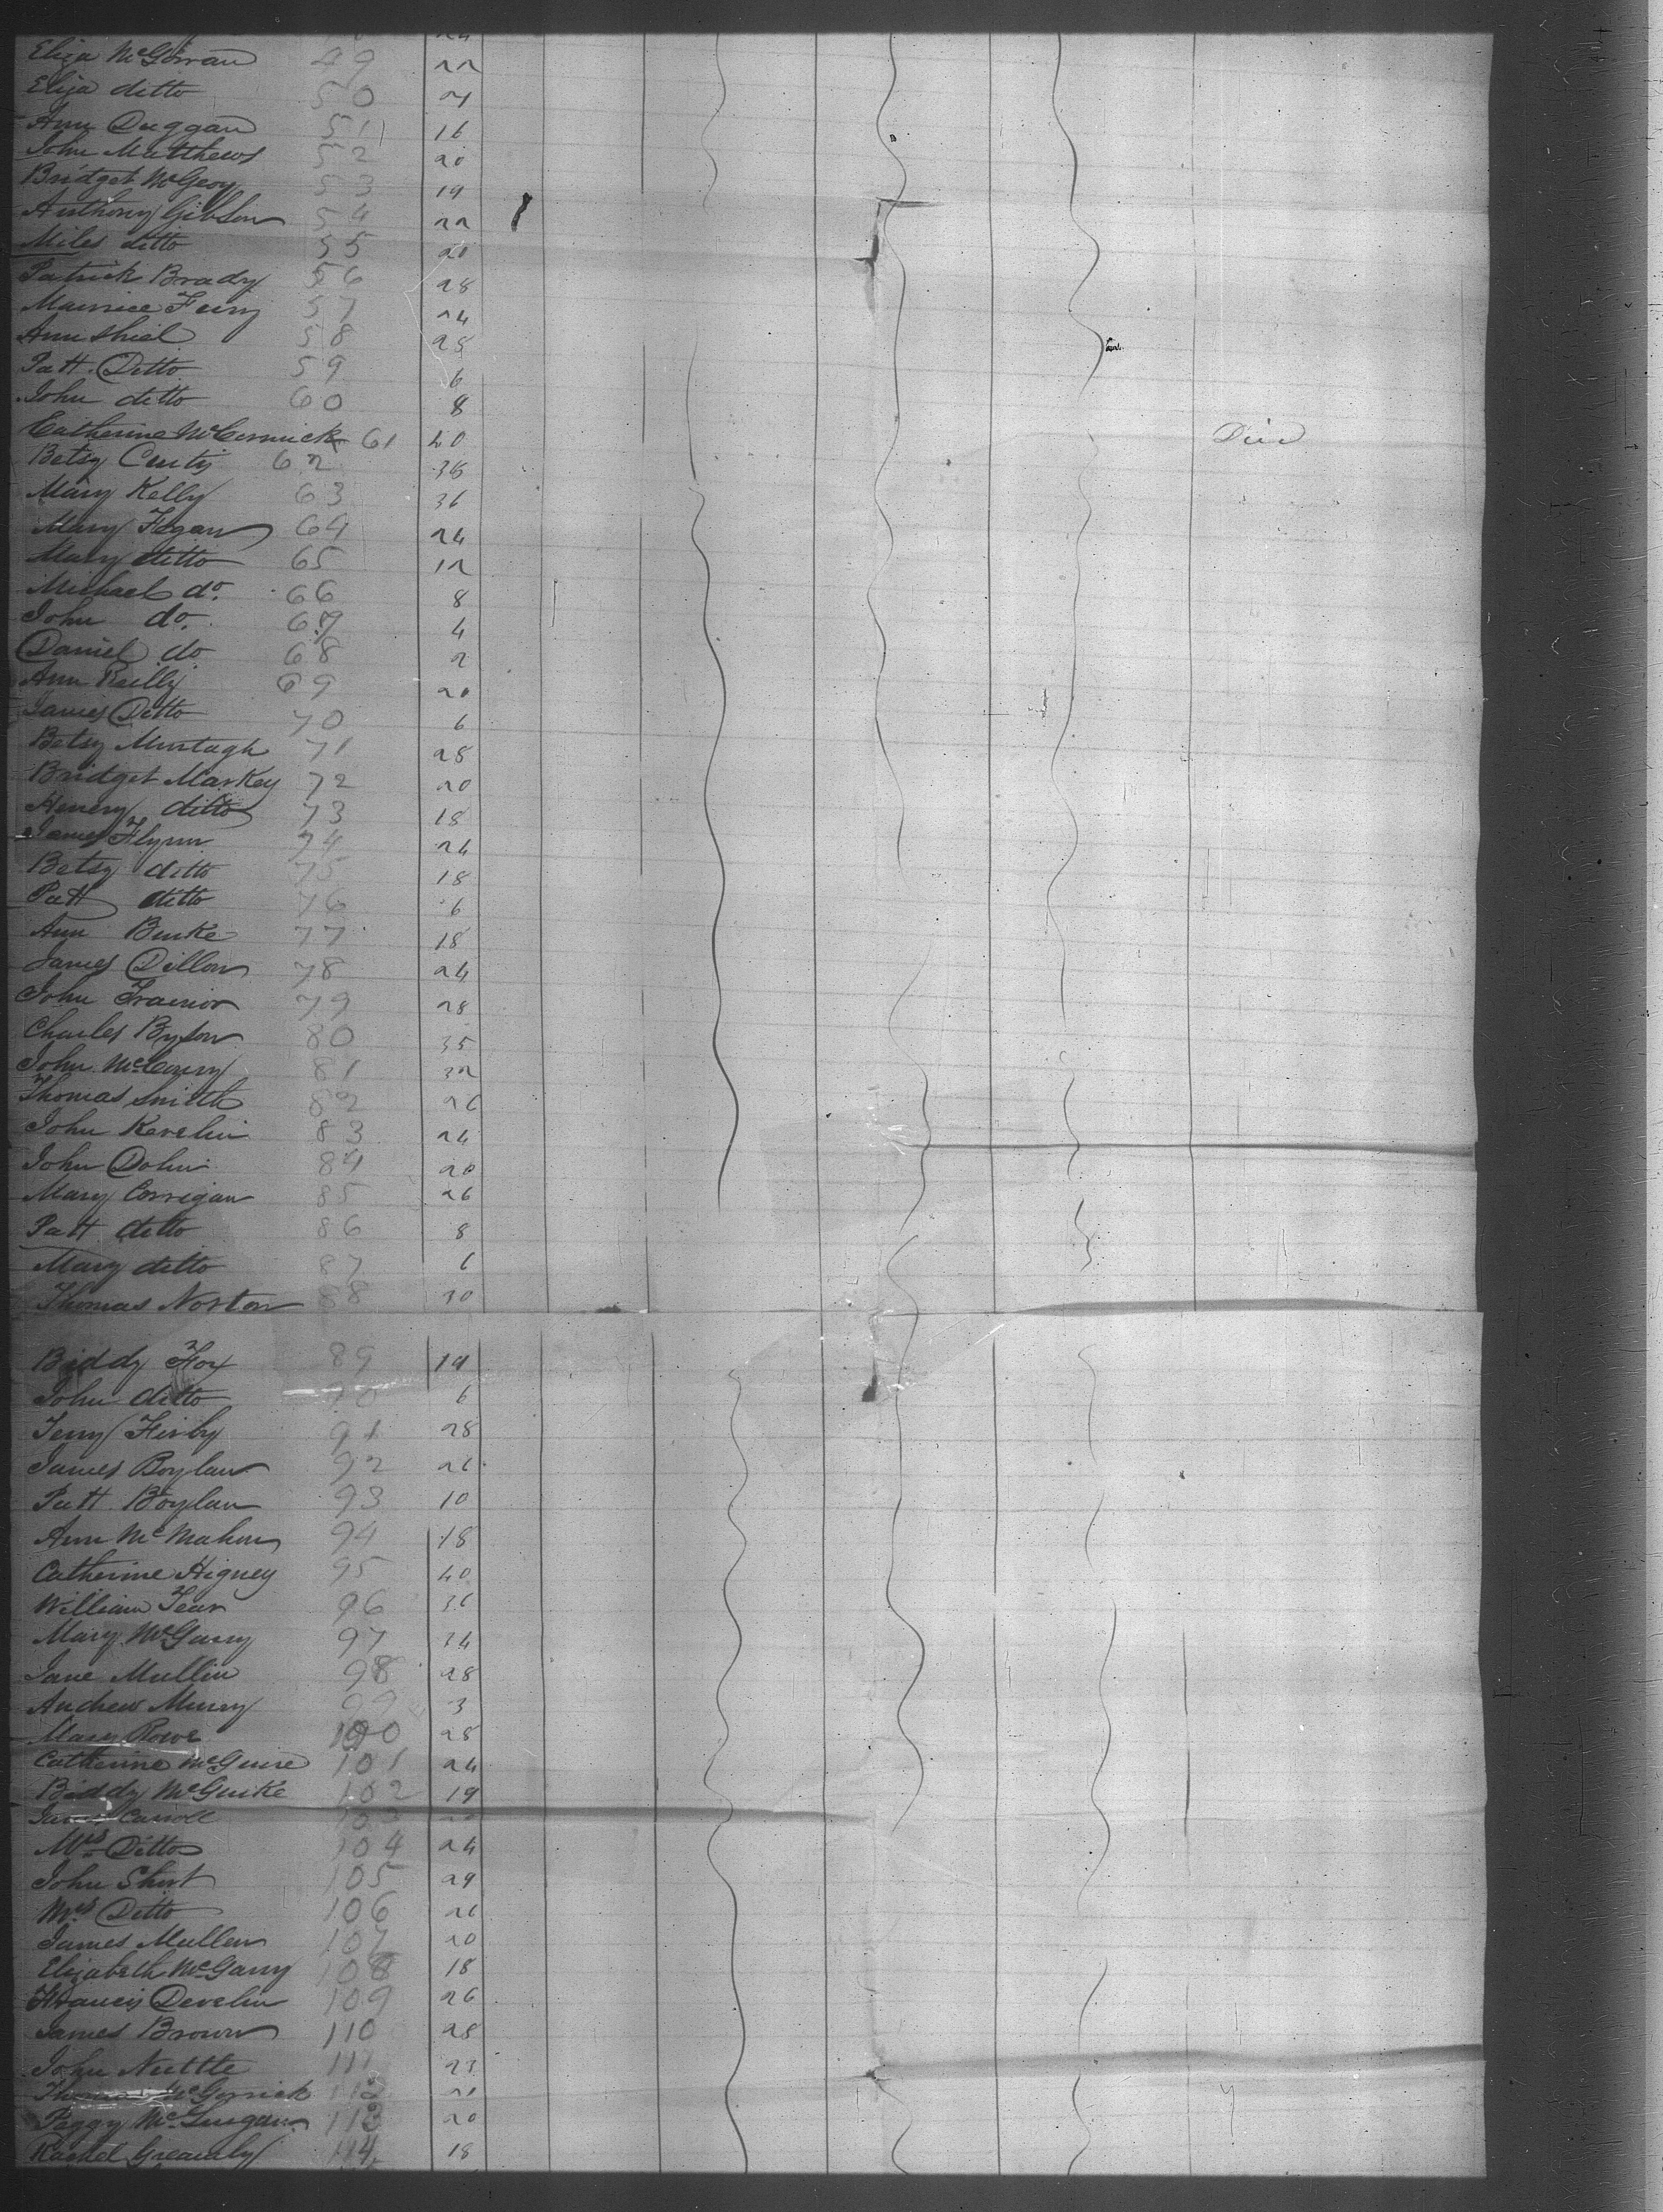 Eliza McGowan 49 22
Eliza ditto 50
Ann Duggan 51 16
John Matthews 52 20
Bridget McGeoy 53 19
Anthony Gibson 54 22
Miles ditto 55 20
Patrick Brady 56 28
Maurice 57 24
Ann Shiel 58 28
Patt. Ditto 59 6
John ditto 60 8
Catherine McCormick 61 40 Died
Betsy 62 36
Mary Kelly 63 36
Mary Fegan 64 24
Mary ditto 65 12
Michael do. 66 8
John do. 67 4
Daniel do 68 2
Ann Reilly 69 20
James Ditto 70 6
Betsy Murtagh 71 28
Bridget Markey 72 20
Henery ditto 73 18
James Flynn 74 24
Betsy ditto 75 18
Patt ditto 76 6
Ann Burke 77 18
James Dillon 78 24
John Trainor 79 28
Charles Byson 80 35
John McCourry 81 32
Thomas Smith 82 26
John Kevelin 83 24
John Dolin 84 20
Mary Corrigan 85 26
Patt ditto 86 8
Mary ditto 87 6
Thomas Norton 88 30
Biddy Fox 89 19
John ditto 90 6
91 28
James Boylan 92 26
Patt Boylan 93 10
Ann McMahon 94 18
Catherine Higney 95 40
William 96 36
Mary McGarry 97 34
Jane Mullin 98 28
Andrew 99 3
Mary Rowe 100 28
Catherine McGuire 101 24
Biddy McGuike 102 19
Carroll 103
Mrs Ditto 104 24
John Short 105 29
Mrs Ditto 106 26
James Mullen 107 20
Elizabeth McGarry 108 18
Francis Develin 109 26
James Brown 110 28
John Nuttle 111 23
Thomas McGorrick 112
Peggy McGuigan 113 20
Greamly 114 18